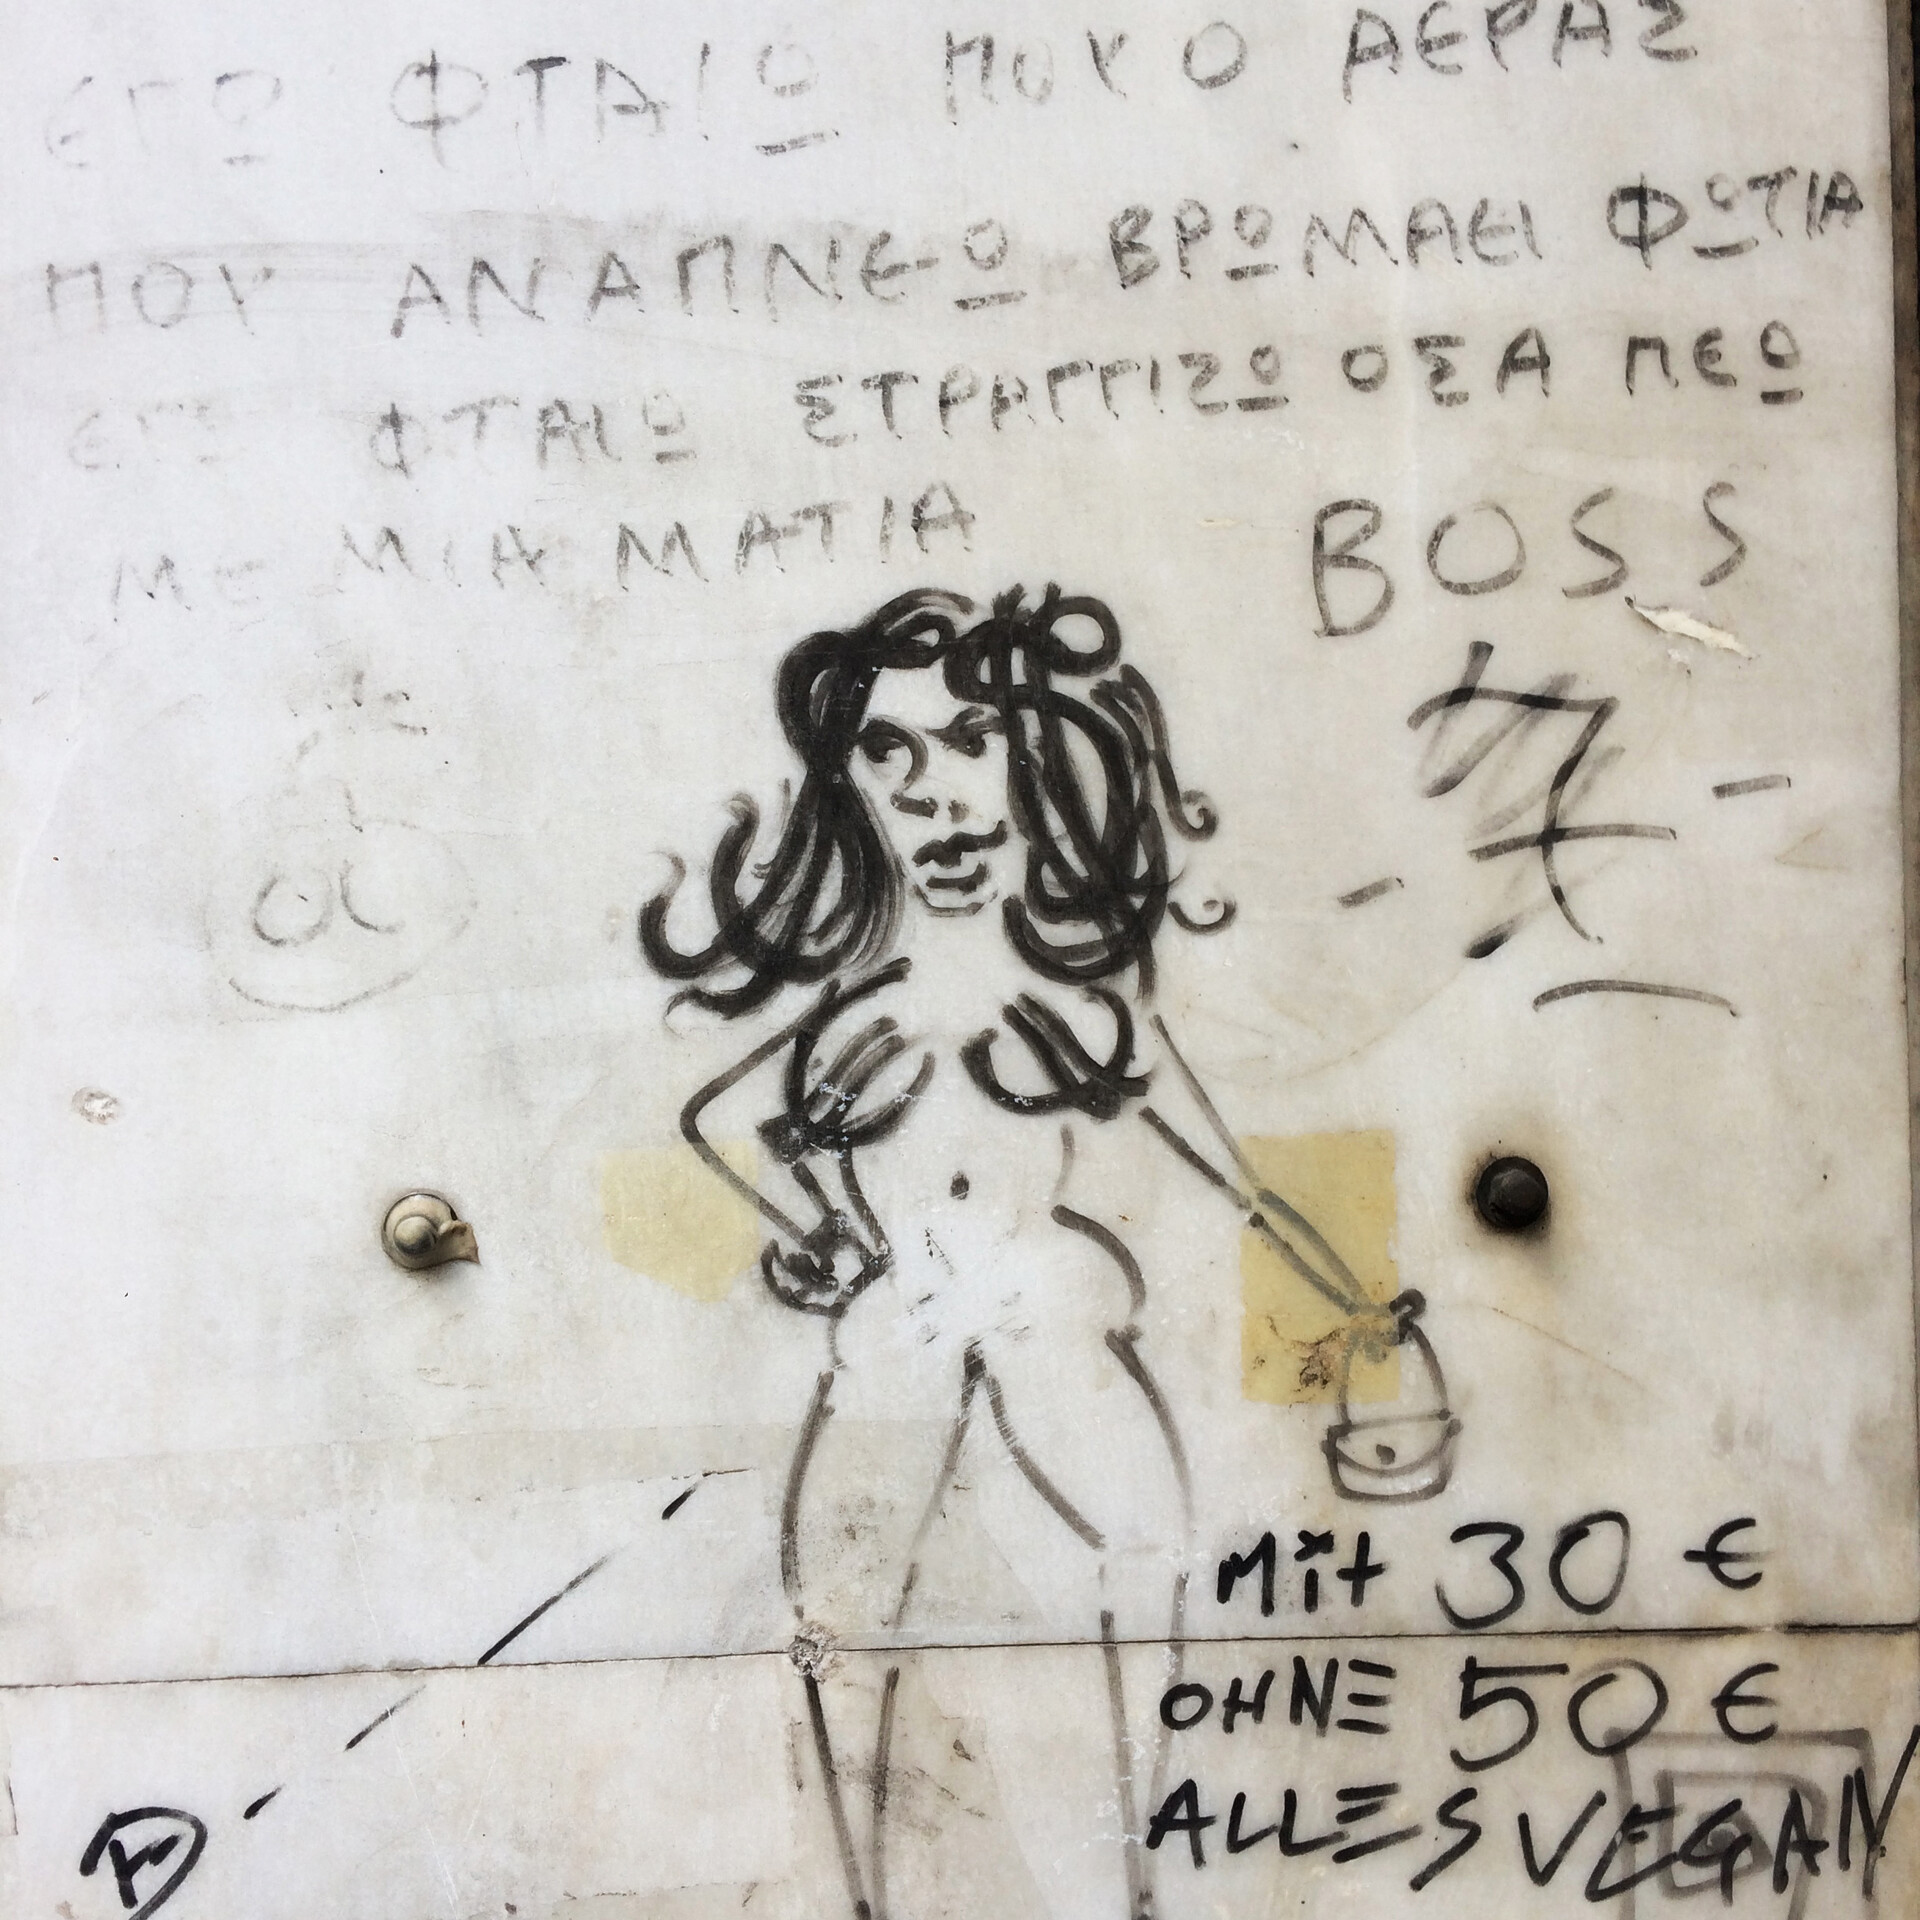 ΕΓΩ ΦΤΑΙΩ ΠΟΥ Ο ΑΕΡΑΣ
ΠΟΥ ΑΝΑΠΝΕΩ ΒΡΩΜΑΕΙ ΦΩΤΙΑ
ΕΓΩ ΦΤΑΙΩ ΣΤΡΑΓΓΙΖΩ ΟΣΑ ΠΕΩ
ΜΕ ΜΙΑ ΜΑΤΙΑ
BOSS
Mit 30 €
OHNE 50 €
ALLES VEGAN